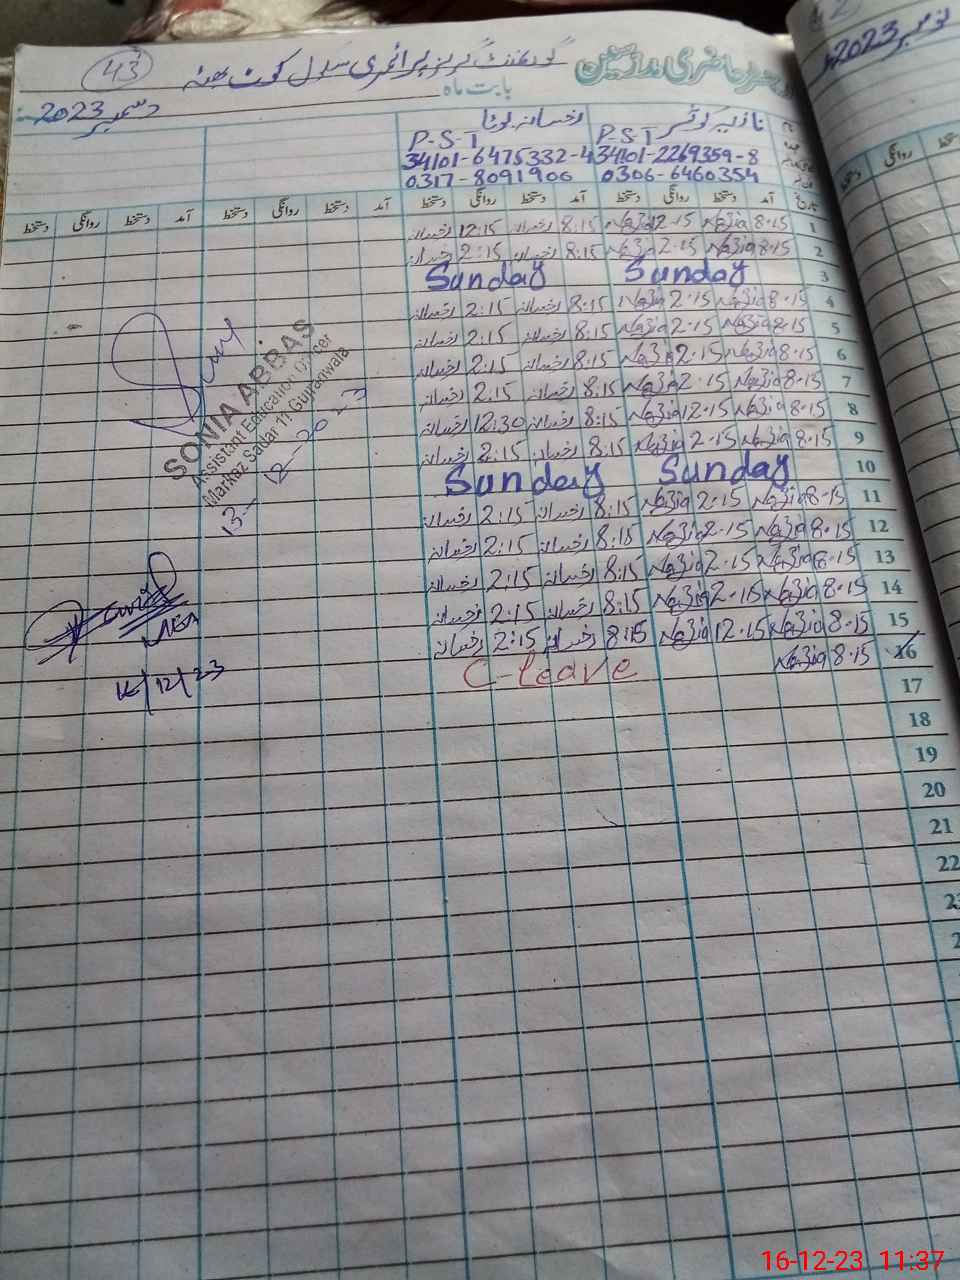 43
گورنمنٹ گرلز پرائمری سکول کوٹ بھٹہ
حاضری مدرسین
نومبر 2023
دسمبر 2023
بابت ماہ
نازیہ کوثر رخسانہ
P-S-T P-S-T
34101-2269359-8 34101-6475332-4
0306-6460354 0317-8091906
آمد دستخط روانگی دستخط آمد دستخط روانگی دستخط آمد دستخط روانگی دستخط آمد دستخط روانگی دستخط
روانگی
1 8.15 Nazia 12.15 Nazia 8:15 رخسانہ 12:15 رخسانہ
2 8.15 Nazia 2.15 Nazia 8:15 رخسانہ 2:15 رخسانہ
3 Sunday Sunday
4 8.15 Nazia 2.15 Nazia 8:15 رخسانہ 2:15 رخسانہ
5 8.15 Nazia 2.15 Nazia 8:15 رخسانہ 2:15 رخسانہ
6 8.15 Nazia 2.15 Nazia 8:15 رخسانہ 2:15 رخسانہ
7 8.15 Nazia 2.15 Nazia 8:15 رخسانہ 2:15 رخسانہ
8 8.15 Nazia 12.15 Nazia 8:15 رخسانہ 12:30 رخسانہ
9 8.15 Nazia 2.15 Nazia 8:15 رخسانہ 2:15 رخسانہ
10 Sunday Sunday
11 8.15 Nazia 2.15 Nazia 8:15 رخسانہ 2:15 رخسانہ
12 8.15 Nazia 2.15 Nazia 8:15 رخسانہ 2:15 رخسانہ
13 8.15 Nazia 2.15 Nazia 8:15 رخسانہ 2:15 رخسانہ
14 8.15 Nazia 2.15 Nazia 8:15 رخسانہ 2:15 رخسانہ
15 8.15 Nazia 12.15 Nazia 8:15 رخسانہ 2:15 رخسانہ
16 8.15 Nazia C-leave
17
18
19
20
21
22
SONIA ABBAS
Assistant Education Officer
Markaz Sadar 11 Gujranwala
13-12-2023
16-12-23 11:37